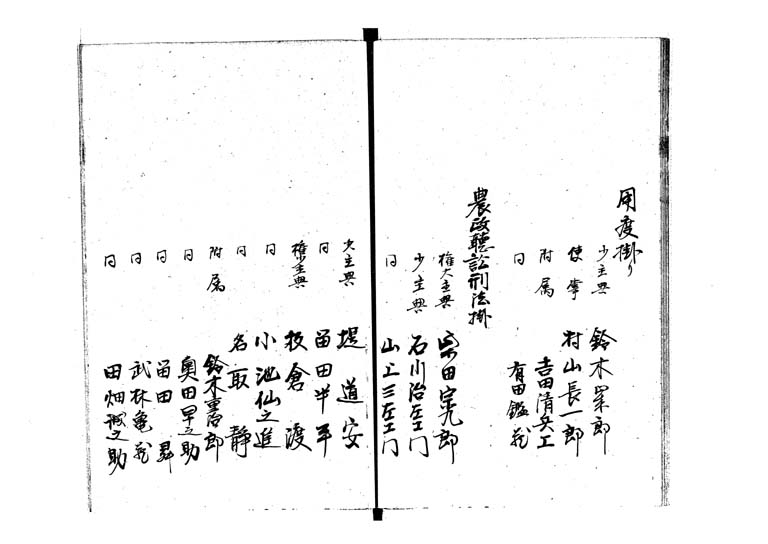 用度掛り
少主典 鈴木 郎
使掌 村山長一郎
附属 吉田清兵工
同 有田鑑蔵
農政聴訟刑法掛
権大主典 柴田宗九郎
少主典 石川治左エ門
同 山上三左エ門
少主典 堤道安
同 富田半平
権少主典 板倉渡
同 小池仙之進
同 名取静
附属 鈴木重次郎
同 奥田早之助
同 富田昇
同 武林亀蔵
同 田畑誠之助